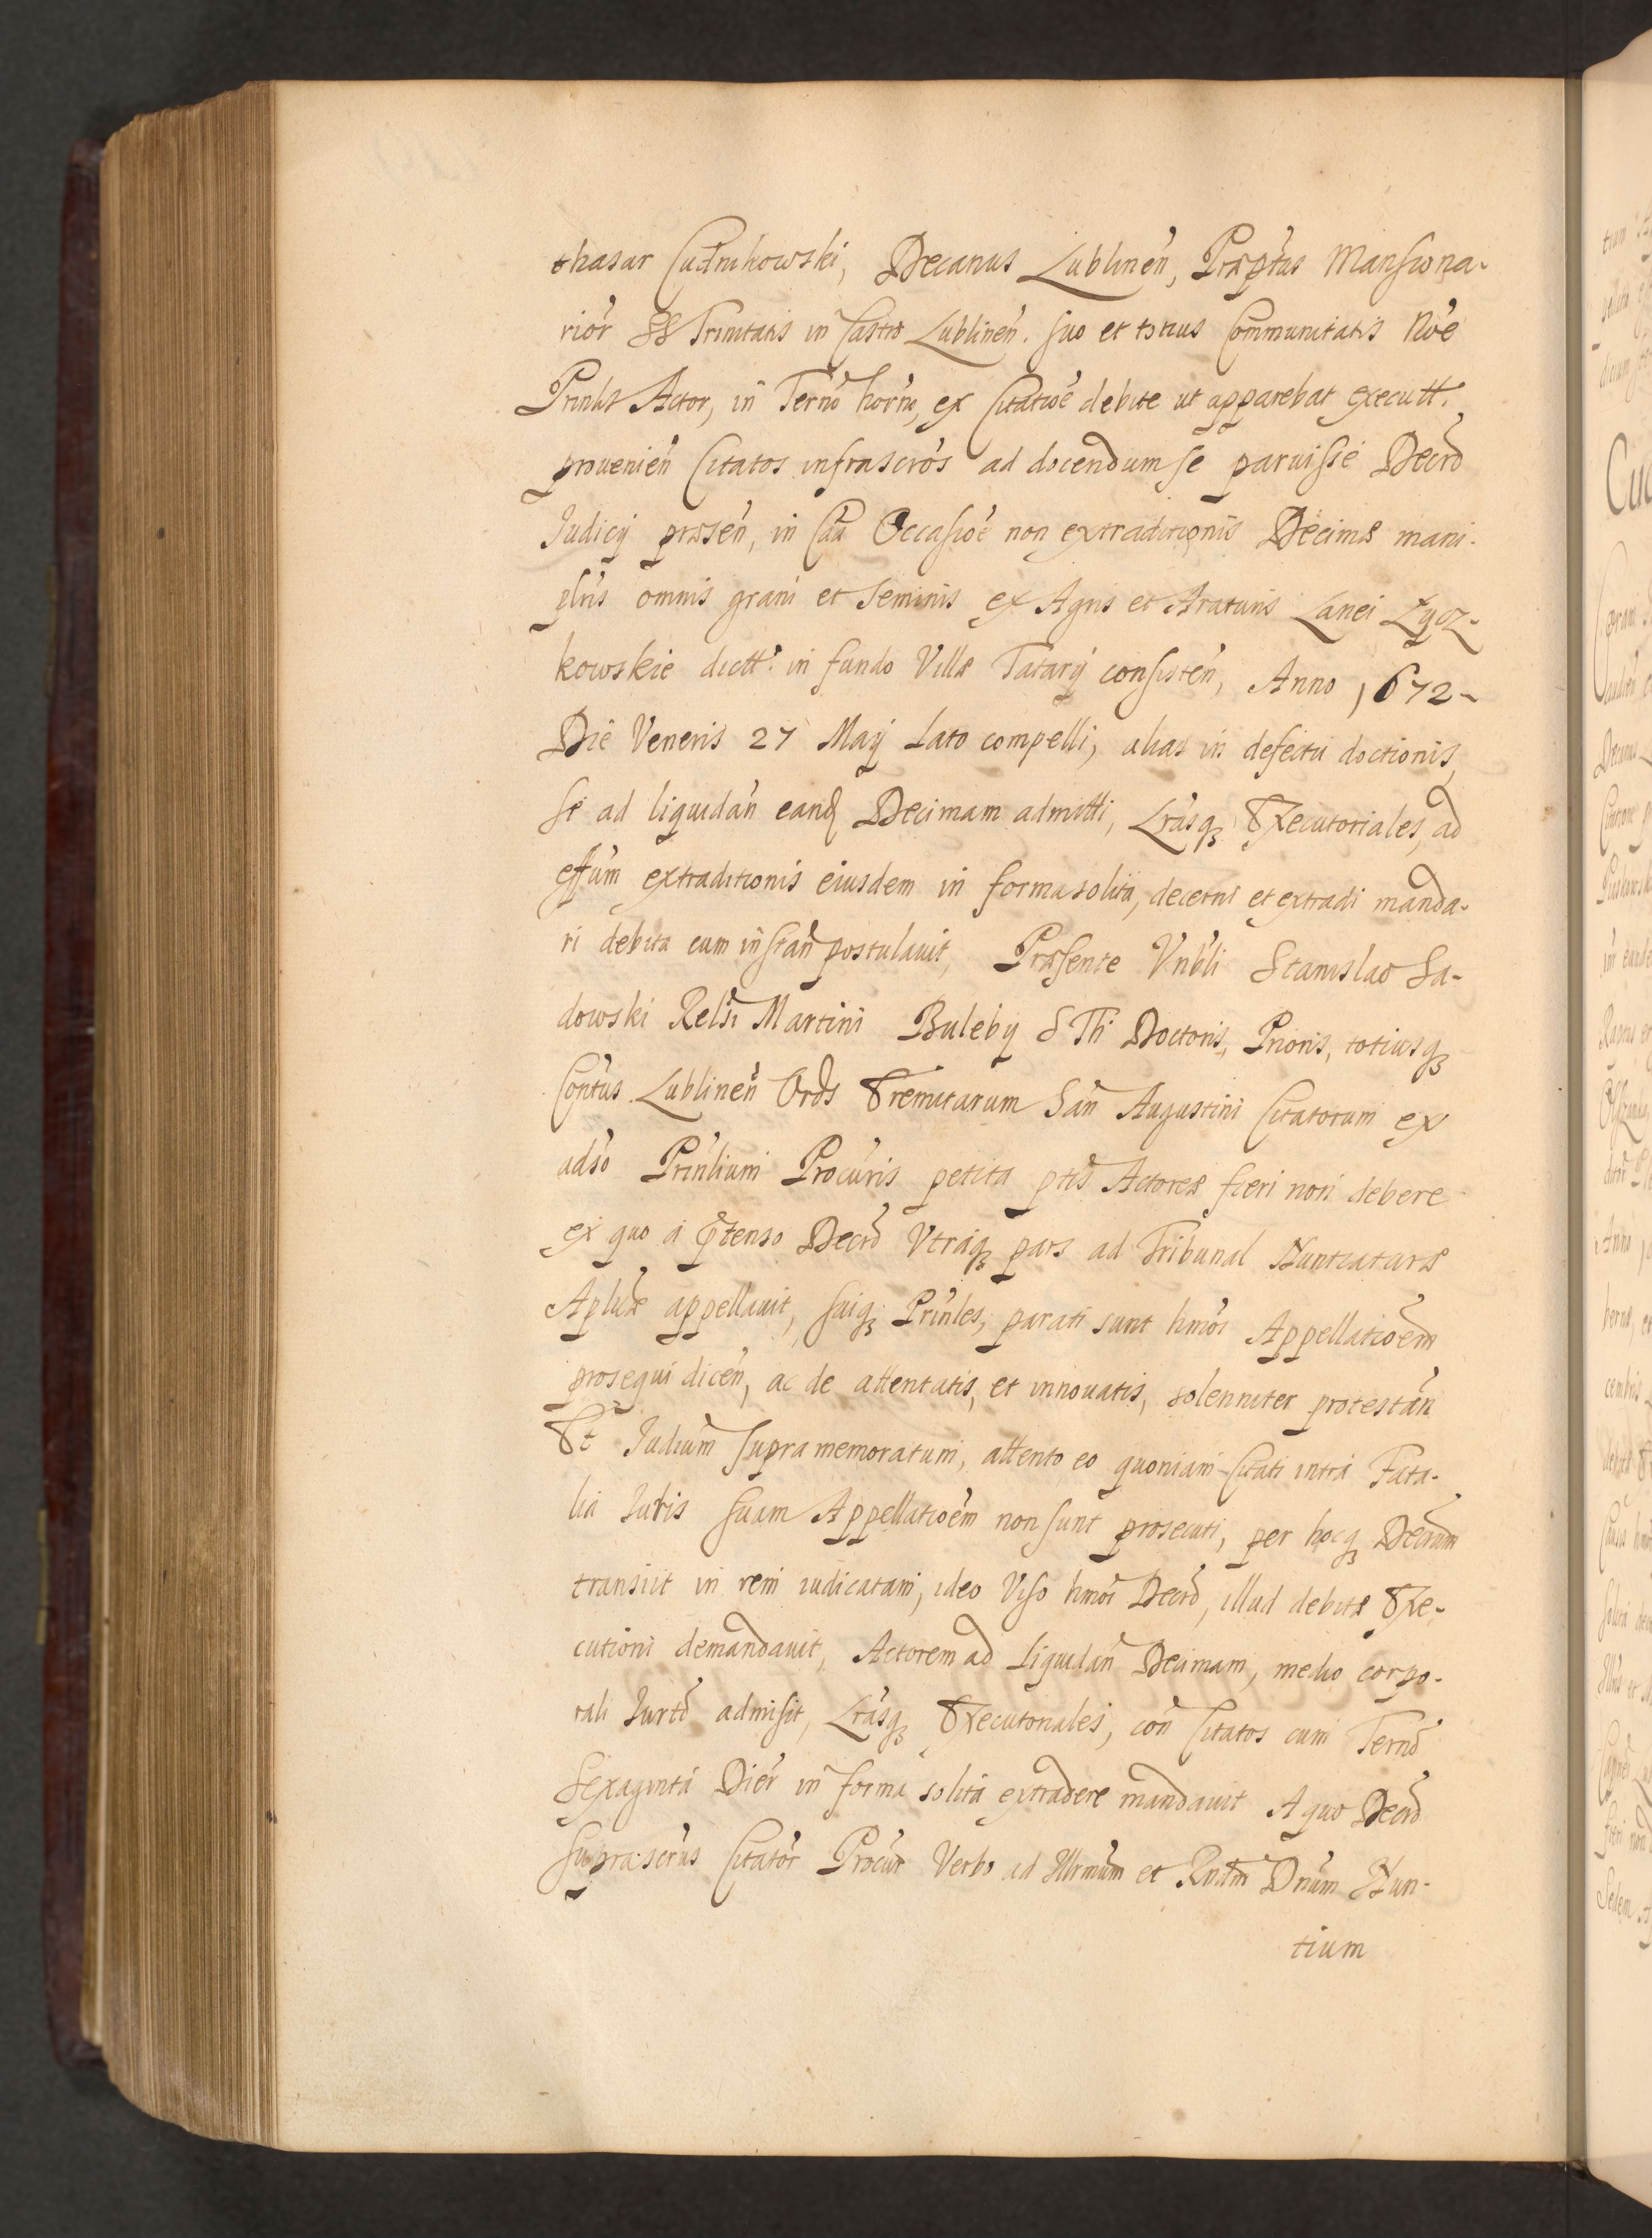 thasar Cudnikowski, Decanus Lublinen̄, Præpt̄us Mansiona-
riōr SS Trinitatis in Castro Lublinen̄. suo et totius Communitatis Nōe
Prinlis Actor, in Tern̄o horn̄o, ex Citatiōe debite ut apparebat executt.
provenien̄ Citatos infrascr̄os ad docendum se paruisse Decr̄o
Judicij præsen̄, in Cāā Occasiōe non extraditionis Decimæ mani-
plr̄is omnis grani et seminis ex Agris et Araturis Lanei Łycz-
kowskie dictt. in fundo Villæ Tatary consisten̄, Anno 1672-
Die Veneris 27 Maij Lato compelli, alias in defectu doctionis,
se ad liquidan̄ eand Decimam admitti, Lr̄asq3 Executoriales, ad
effūm extraditionis eiusdem in forma solita, decerni et extradi manda-
ri debita cum instan̄ postulavit, Præsente Vn̄bli Stanislao Sa-
dowski Relsi Martini Buleby S Th Doctoris, Prioris, totiusq3
Con̄tus Lublinen̄ Ord̄s Eremitarum San̄ Augustini Citatorum ex
adso Prin̄lium Procūris petita pt̄is Actoreæ fieri non debere
ex quo a p̄tenso Decr̄o Utraq3 pars ad Tribunal Nuntiaturæ
Aplicæ appellavit, suiq3 Prin̄les, parati sunt hmōi Appellatiōem
prosequi dicen̄, ac de attentatis, et innovatis, solenniter protestan̄
Et Judiūm supra memoratum, attento eo quoniam Citati intra Fata-
lia Juris suam Appellatiōem non sunt prosecuti, per hocq3 Decr̄um
transiit in rem iudicatam, ideo Viso hmōi Decr̄o, illud debitæ Exe-
cutioni demandavit, Actorem ad Liquidan̄ Decimam, medio corpo-
rali Jurt̄o admisit, Lr̄asq3 Executoriales, con̄ Citatos cum Tern̄o
Sexaginta Diēr in forma solita extradere mandavit A quo Decr̄o
suprascr̄us Citatōr Procūr Verbo ad Illr̄mum et Rn̄dm Dn̄um Nun-
tium